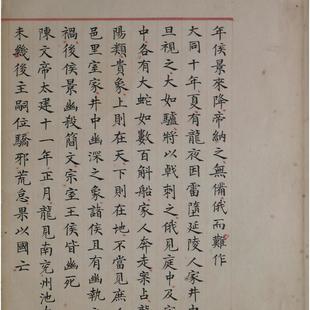 年侯景來降帝納之無備俄而難作
大同十年夏有龍夜因雷隨延陵人家井中
旦視之大如驢將以戟刺之俄見庭中及室
中各有大蛇如數百斛船家人奔走案占龍
陽類貴象上則在天下則在地不當見庶人
邑里室家井中幽深之象諸侯且有幽執之
禍後侯景幽殺簡文宗室王侯皆幽死
陳文帝太建十一年正月龍見南兖州池中
未幾後主嗣位驕邪荒怠果以國亡